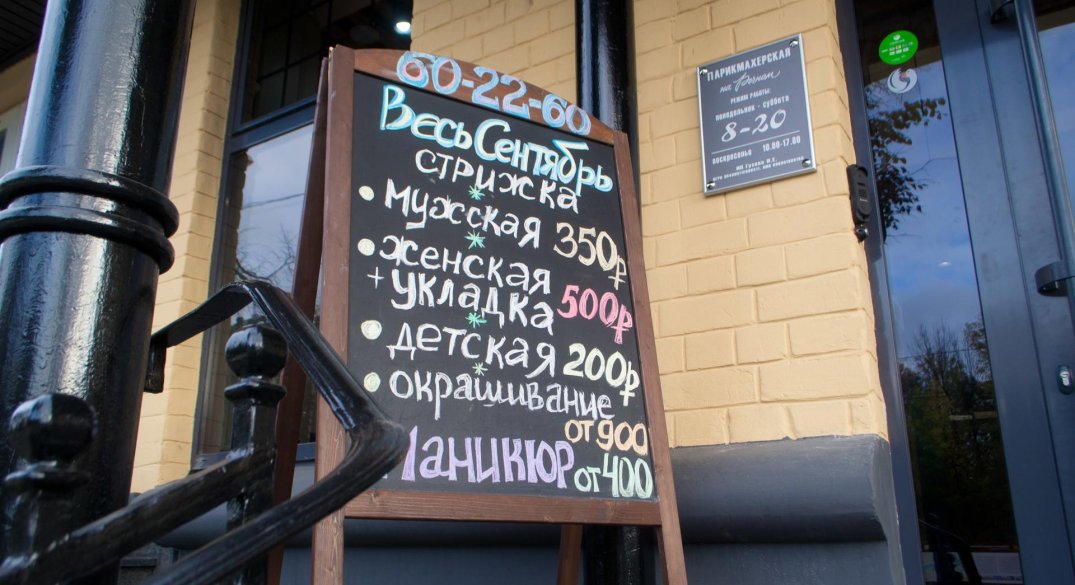 60-22-60
Весь Сентябрь
стрижка
• мужская 350р
• женская
+ укладка 500р
• детская 200р
• окрашивание
от 900
Маникюр от 400
ПАРИКМАХЕРСКАЯ
на
РЕЖИМ РАБОТЫ:
понедельник - суббота
8-20
ВОСКРЕСЕНЬЕ 10.00-17.00